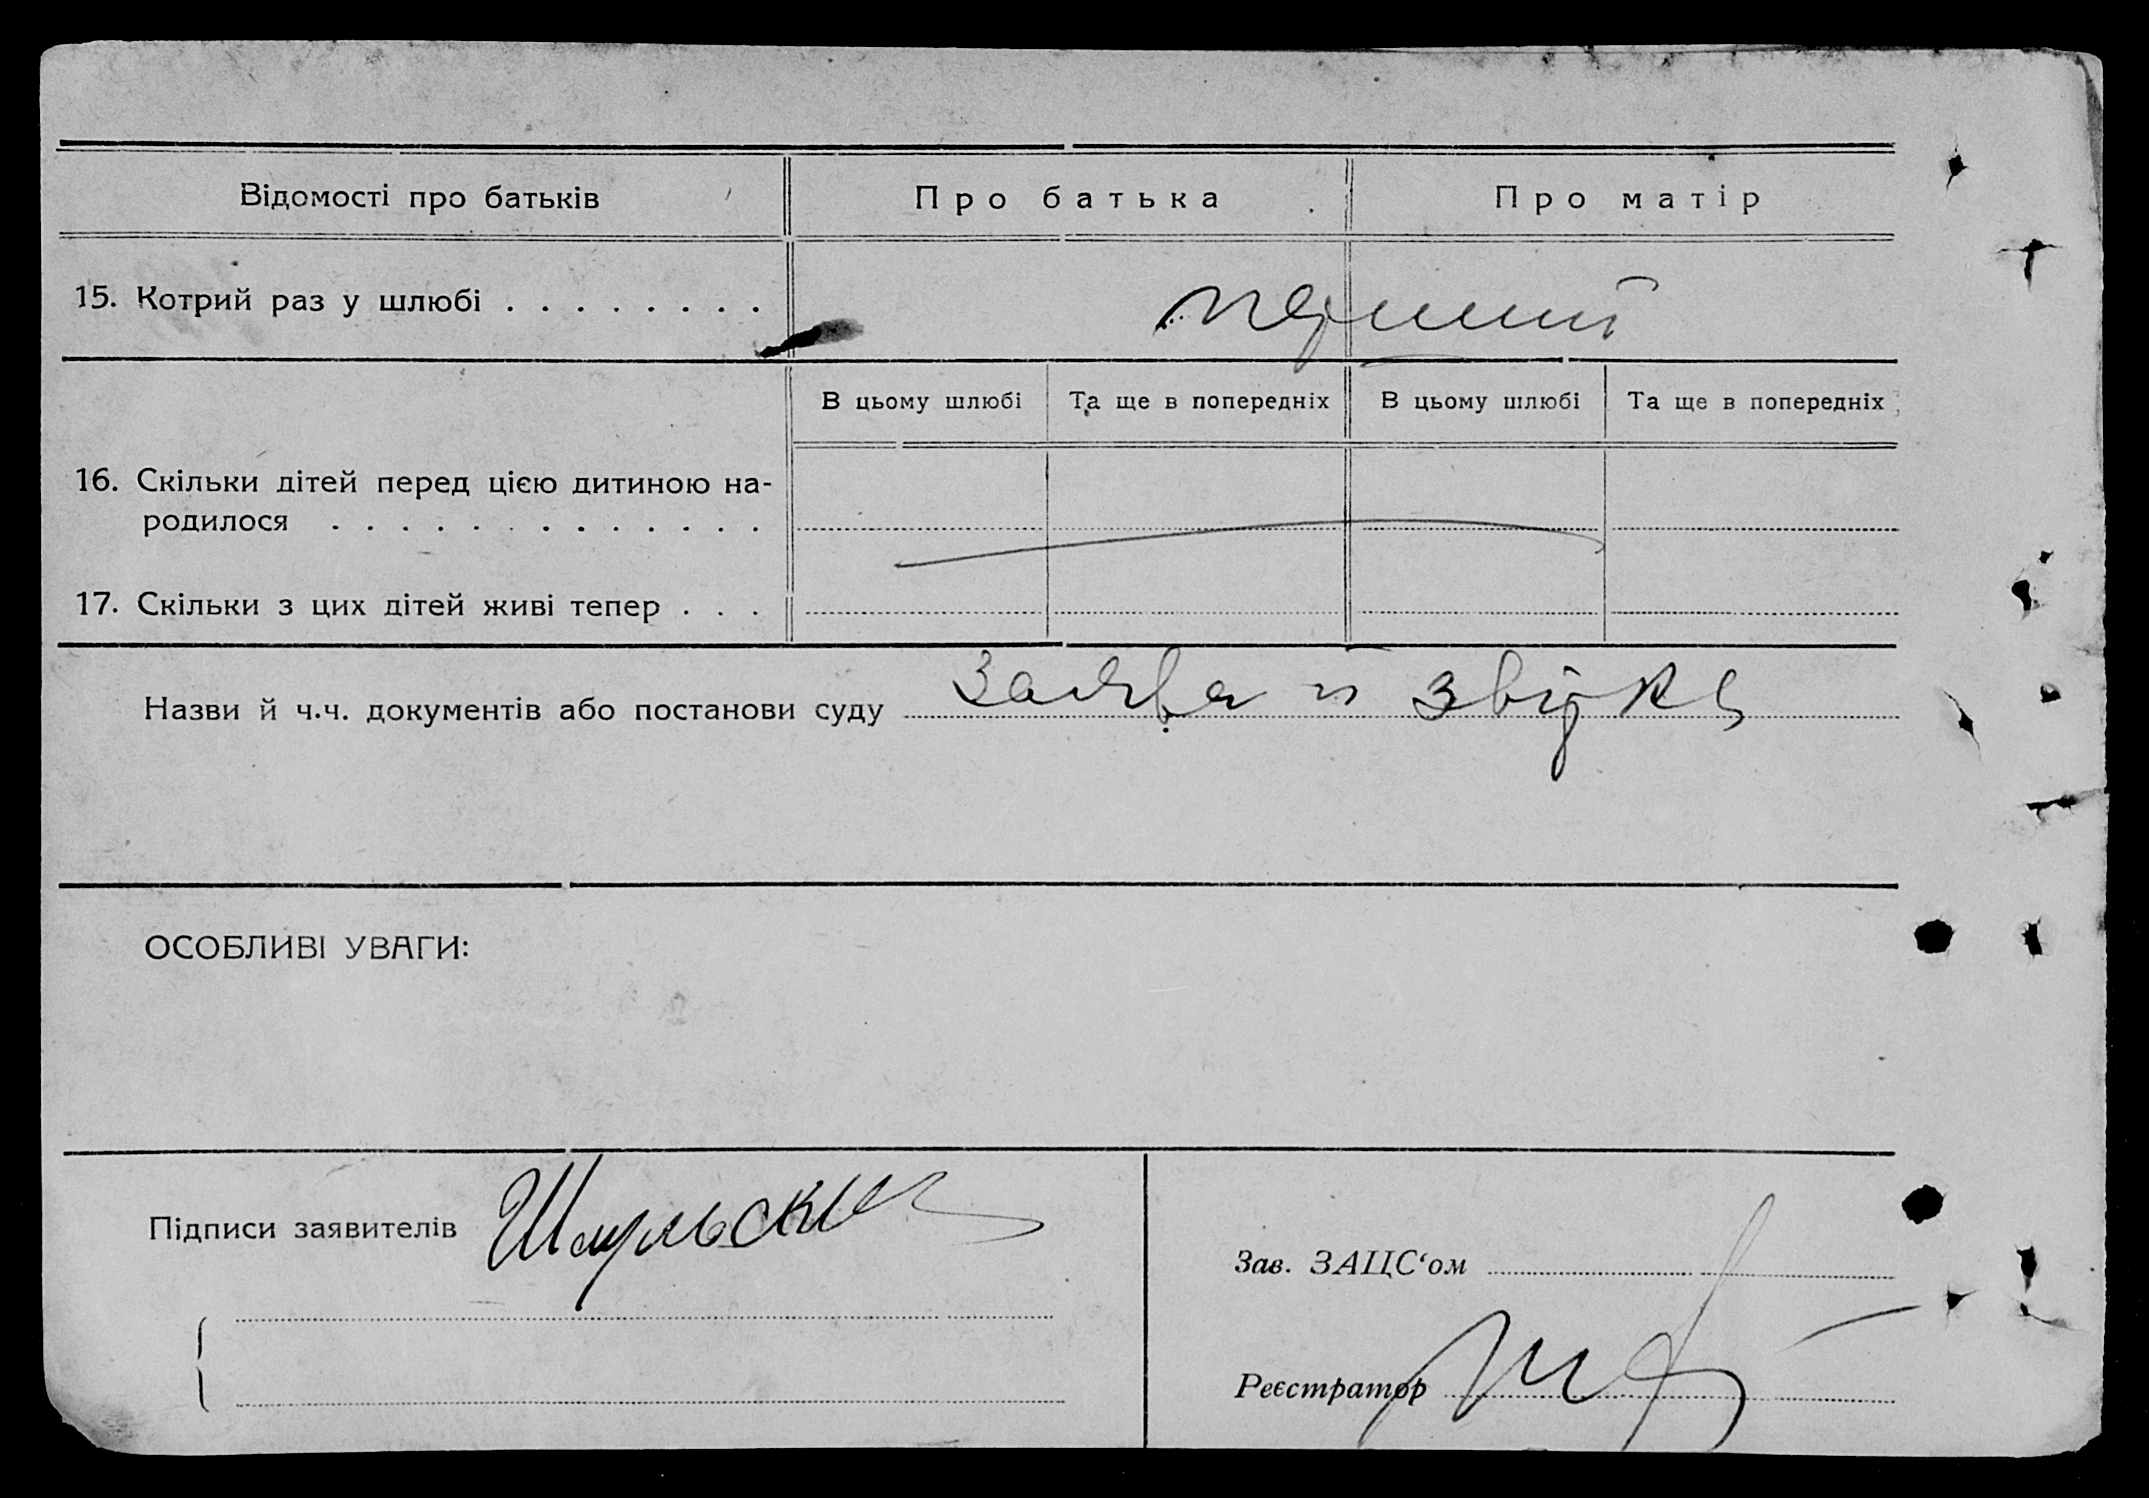 Відомості про батьків Про батька Про матір
15. Котрий раз у шлюбі . . . . . . . . перший
В цьому шлюбі Та ще в попередніх В цьому шлюбі Та ще в попередніх
16. Скільки дітей перед цією дитиною на-
родилося . . . . . . . . . . . . .
17. Скільки з цих дітей живі тепер . . .
Назви й ч.ч. документів або постанови суду заява и звідка
ОСОБЛИВІ УВАГИ:
Підписи заявителів
Зав. ЗАЦС‘ом
Реєстратор